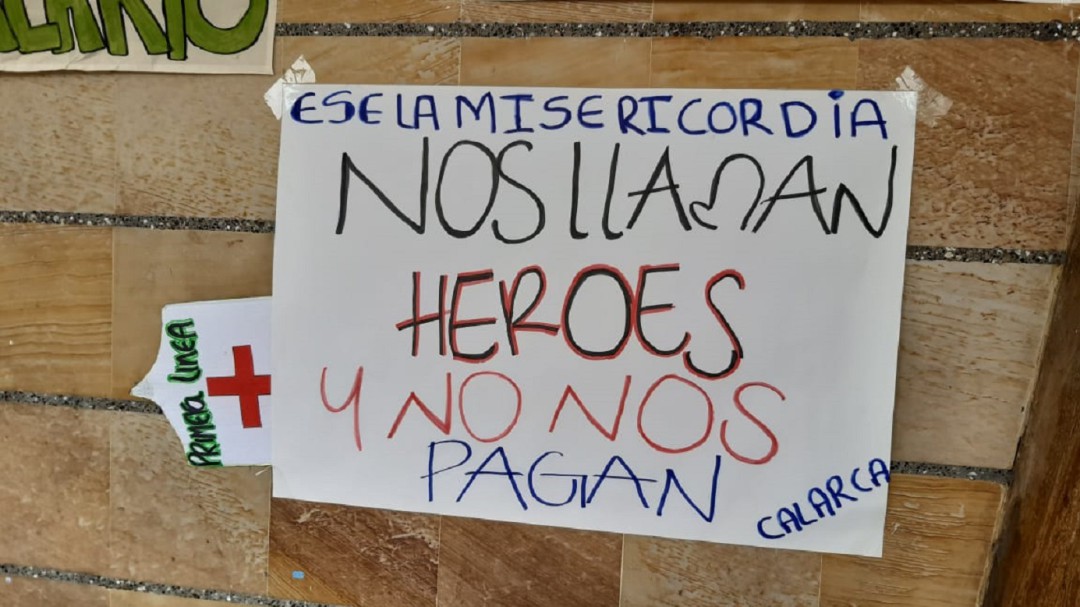 ESE LA MISERICORDiA
NOS llAMAN
HEROES
Y NO NOS
PAGAN
CALARCA
PRIMERA LINEA